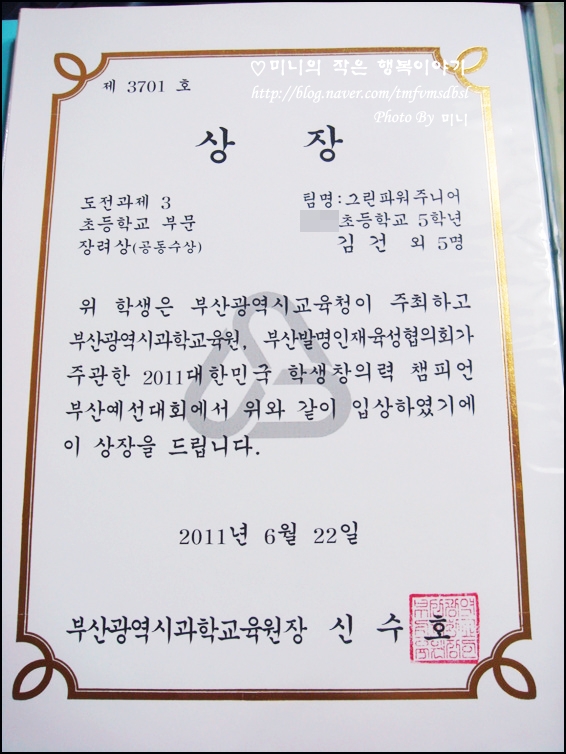 ♡미니의 작은 행복이야기
http://blog.naver.com/tmfvmsdbsl
Photo By 미니
제 3701 호
상 장
도전과제 3
초등학교 부문
장려상(공동수상)
팀명:그린파워주니어
초등학교 5학년
김 건 외 5명
위 학생은 부산광역시교육청이 주최하고
부산광역시과학교육원, 부산발명인재육성협의회가
주관한 2011대한민국 학생창의력 챔피언
부산예선대회에서 위와 같이 입상하였기에
이 상장을 드립니다.
2011년 6월 22일
부산광역시과학교육원장 신 수 호